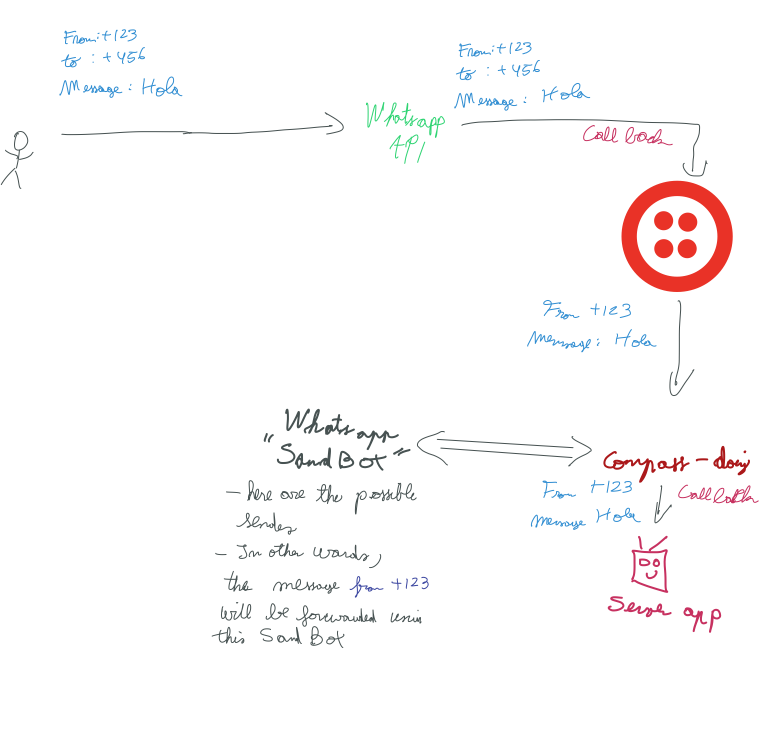 From:+123
to : +456
Message: Hola
From:+123
to : +456
Message: Hola
Whatsapp
API
Call back
From +123
Message: Hola
"Whatsapp
SandBot"
- here are the possible
sender
- In other words,
the message from +123
will be forwarded usin
this SandBot
Compass-doing
From +123
Message Hola
Callback
Server app